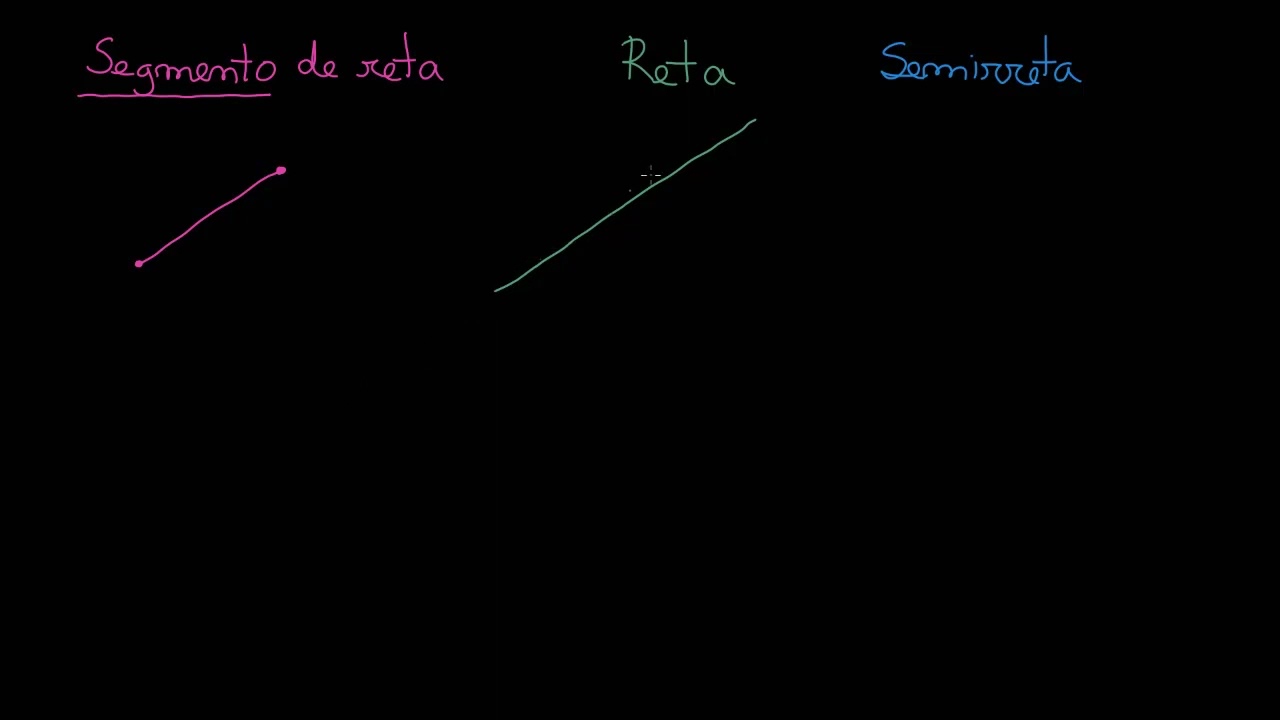 Segmento de reta
Reta
Semirreta